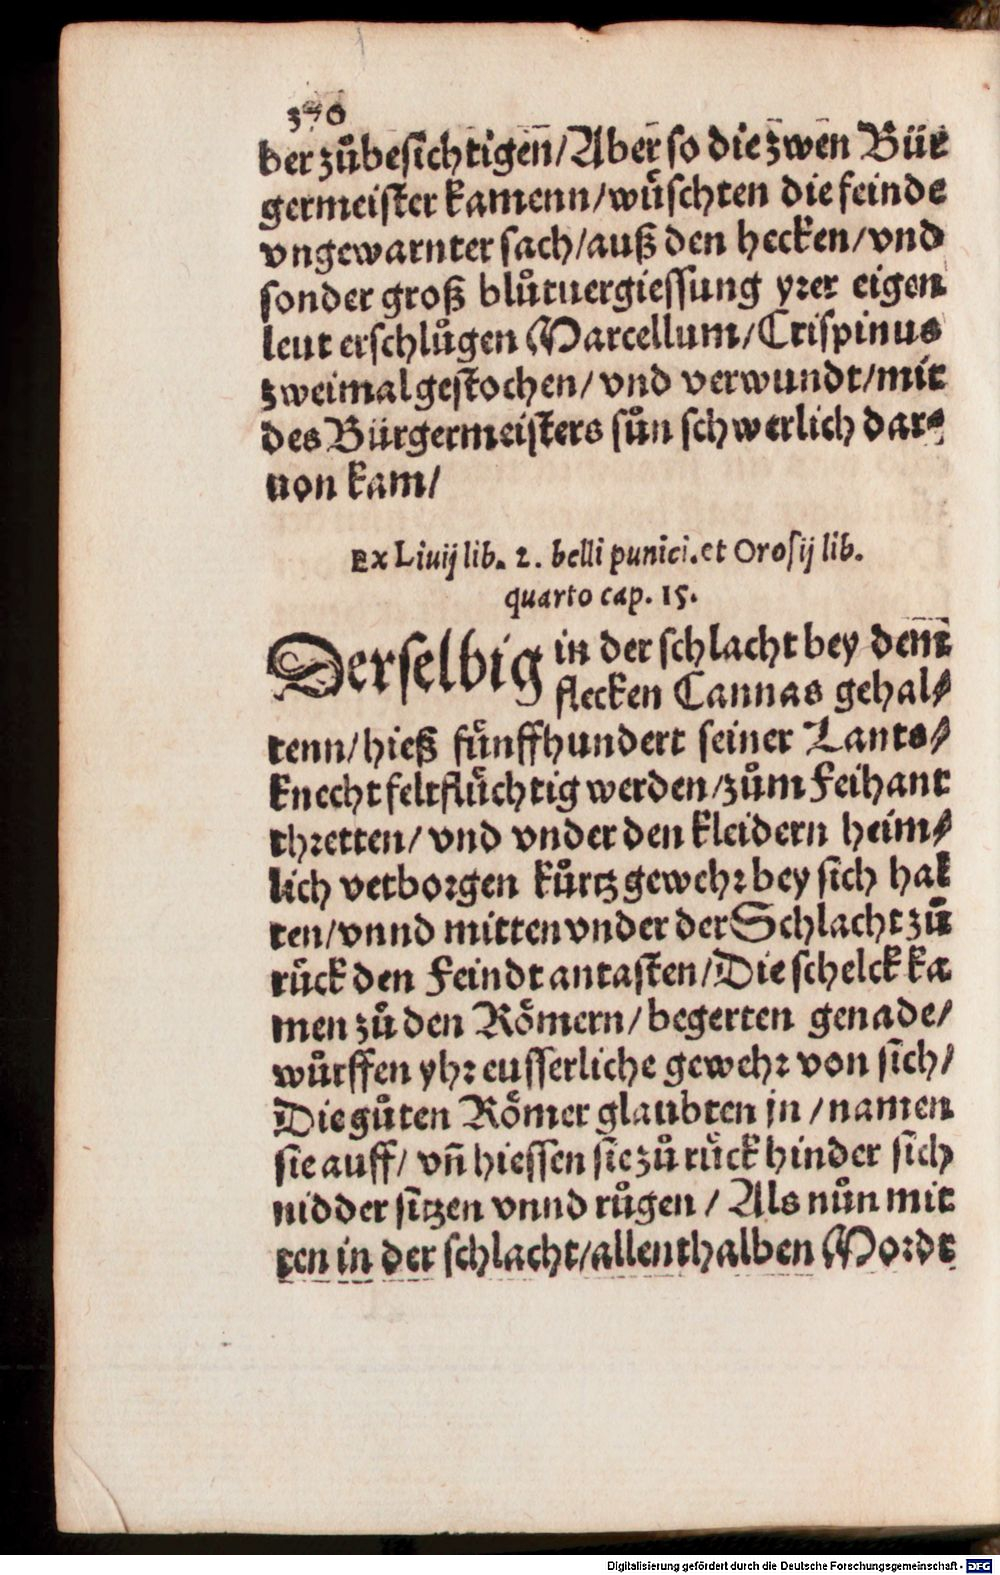 370
ber zůbesichtigen̄/Aber so die zwen Bür
germeister kamenn/wůschten die feinde
vngewarnter sach/auß den hecken/vnd
sonder groß blůtuergiessung yrer eigen
leut erschlůgen Marcellum/Crispinus
zweimal gestochen/ vnd verwundt/mit
des Bürgermeisters sůn schwerlich dar⸗
uon kam/
Ex Liuij lib. 2. belli punici. et Orosij lib.
quarto cap. 15.
Derselbig in der schlacht bey dem
flecken Cannas gehal⸗
tenn/hieß fünffhundert seiner Lants⸗
knecht feltflüchtig werden/zům Feihant
thretten/ vnd vnder den kleidern heim⸗
lich verborgen kůrtz gewehr bey sich hal
ten/vnnd mitten vnder der Schlacht zů
růck den Feindt antasten/Die schelck ka
men zů den Rŏmern/begerten genade/
wůrffen yhr eusserliche gewehr von sich/
Die gůten Rŏmer glaubten jn/namen
sie auff/ vn̄ hiessen sie zů růck hinder sich
nidder sitzen vnnd růgen / Als nůn mit
ten in der schlacht/allenthalben Mordt
Digitalisierung gefördert durch die Deutsche Forschungsgemeinschaft - DFG